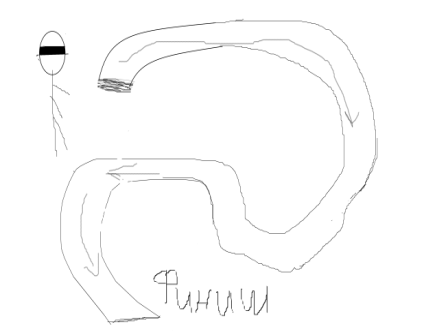 Финиш